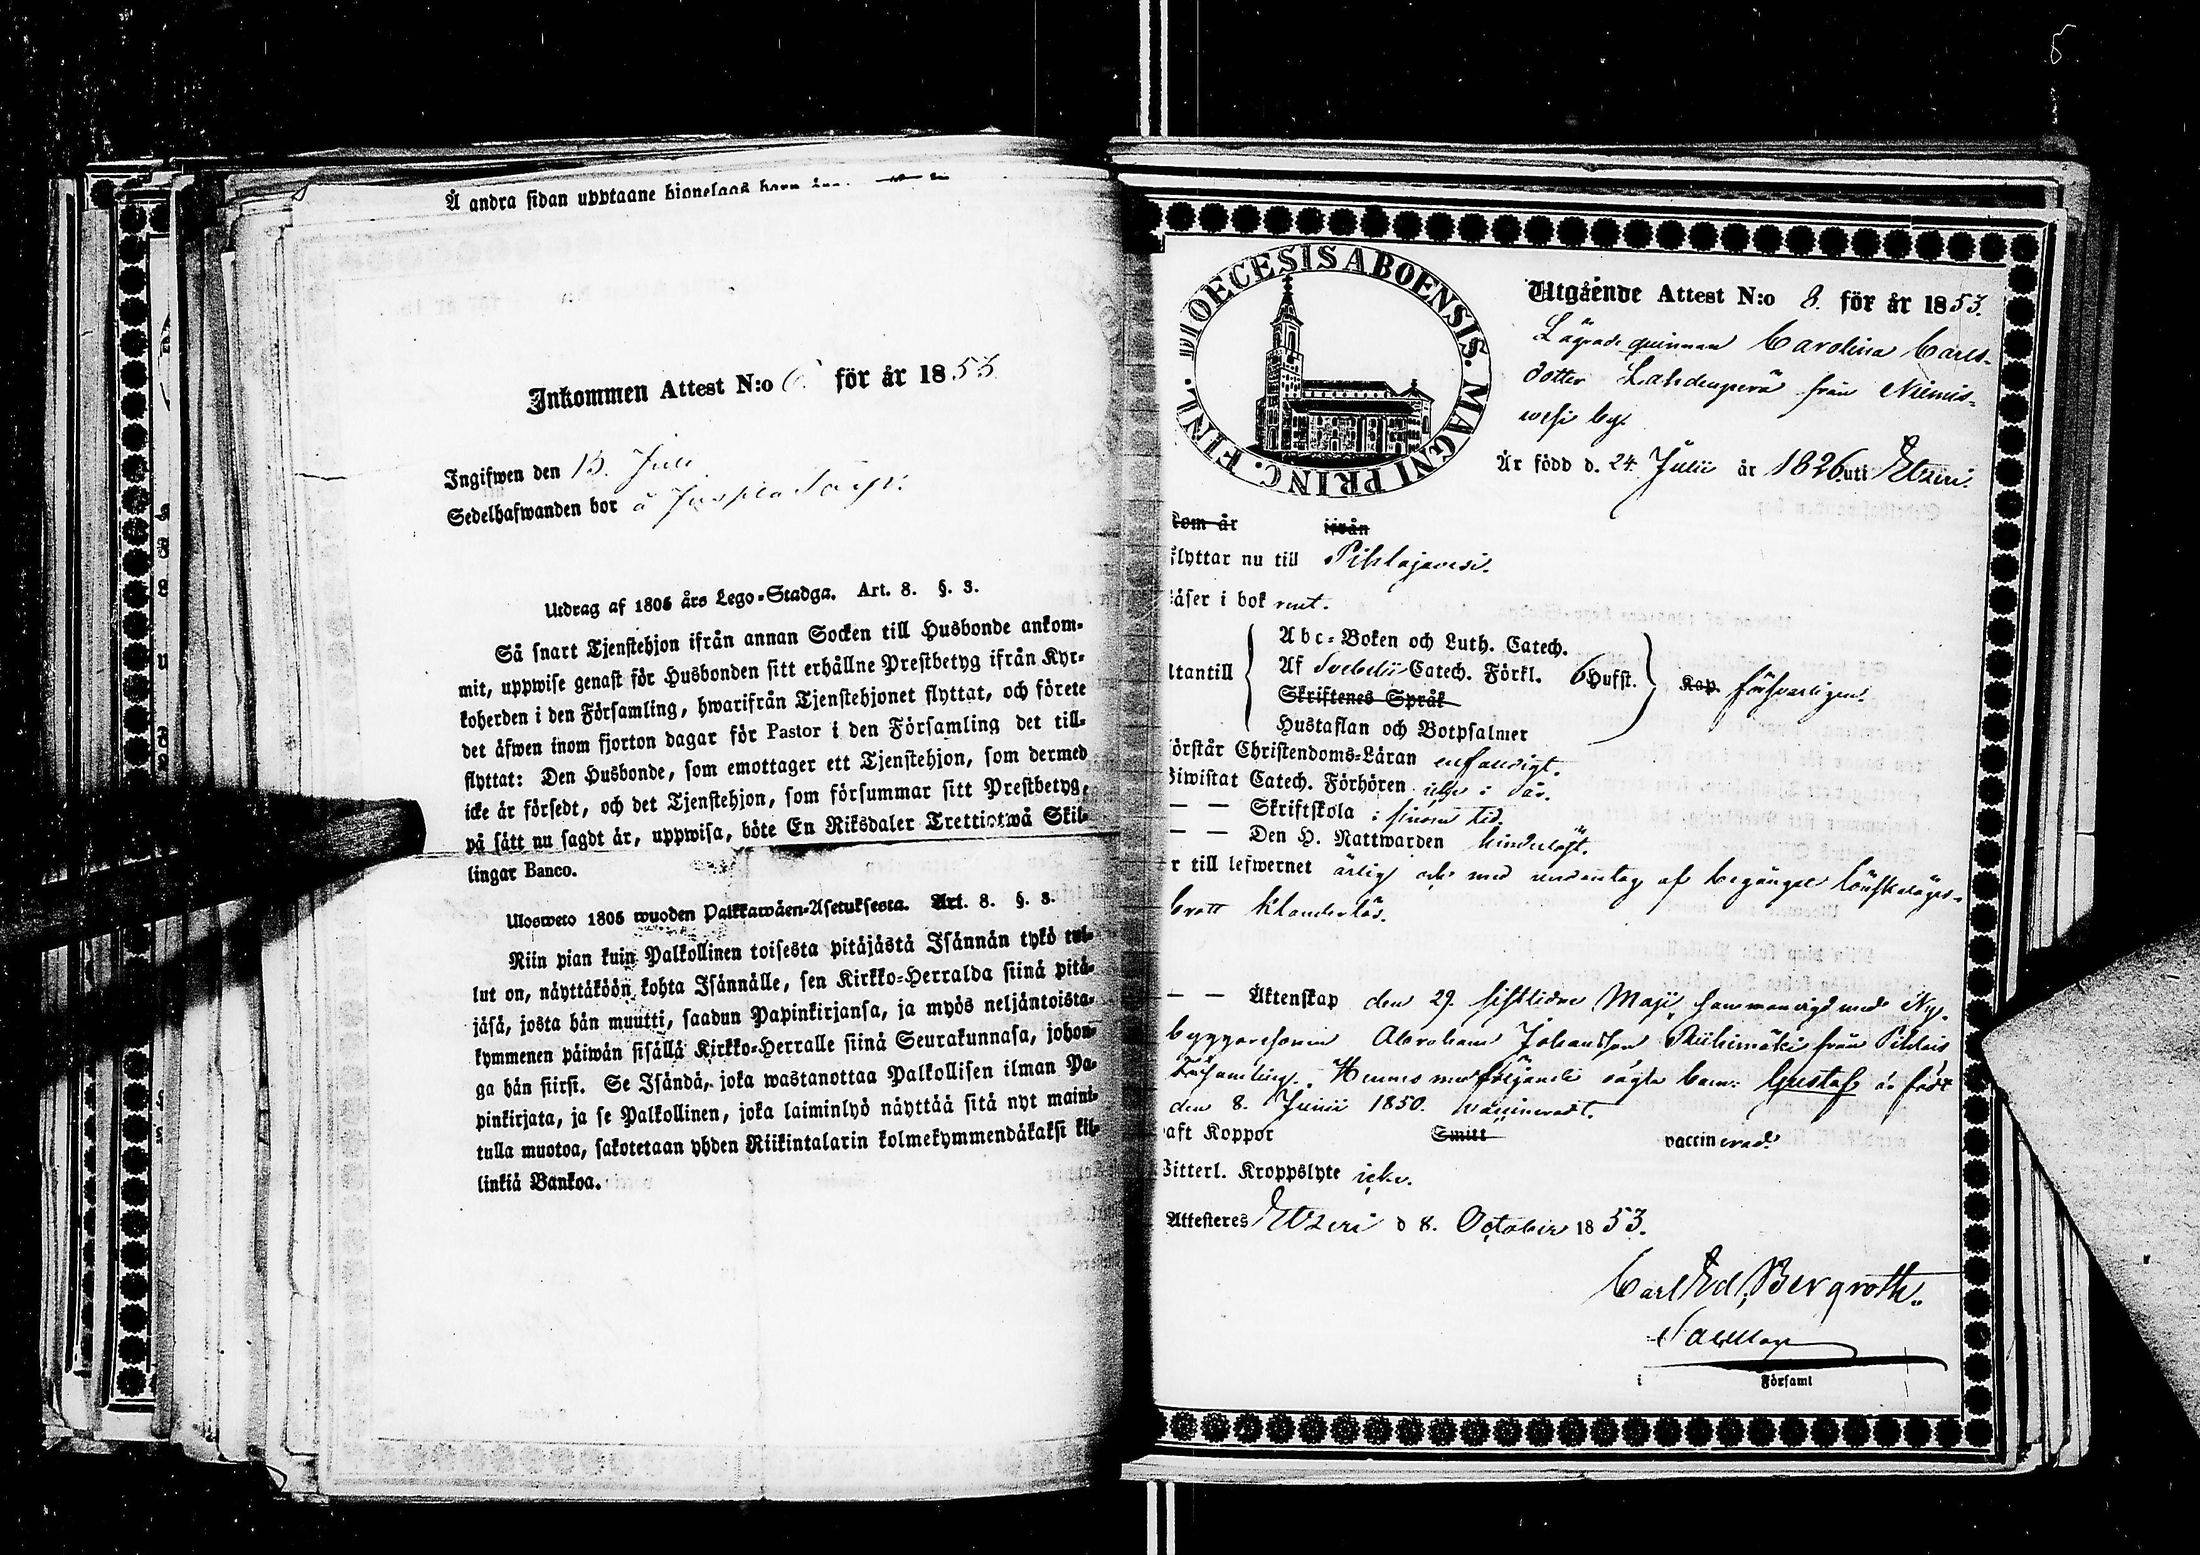 5
Å andra sidan upptagne hjonelags barn äro:
Inkommen Attest N:o 6. för år 1853
Ingifwen den 13. Juli
Sedelhafwanden bor å
Utdrag af 1805 års Lego-Stadga. Art. 8. §. 3.
Så snart Tjenstehjon ifrån annan Socken till Husbonde ankom-
mit, uppwise genast för Husbonden sitt erhållne Prestbetyg ifrån Kyr-
koherden i den Församling, hwarifrån Tjenstehjonet flyttat, och förete
det äfwen inom fjorton dagar för Pastor i den Församling det till-
flyttat: Den Husbonde, som emottager ett Tjenstehjon, som dermed
icke är försedt, och det Tjenstehjon, som försummar sitt Prestbetyg,
på sätt nu sagdt är, uppwisa, böte En Riksdaler Trettiotwå Skil-
lingar Banco.
Ulosweto 1805 wuoden Palkkawäen-Asetuksesta. Art. 8. §. 3.
Niin pian kuin Palkollinen toisesta pitäjästä Isännän tykö tul-
lut on, näyttäköön kohta Isännälle, sen Kirkko-Herralda siinä pitä-
jäsä, josta hän muutti, saadun Papinkirjansa, ja myös neljäntoista-
kymmenen päiwän sisällä Kirkko-Herralle siinä Seurakunnasa, johon-
ga hän siirsi. Se Isändä, joka wastanottaa Palkollisen ilman Pa-
pinkirjata, ja se Palkollinen, joka laiminlyö näyttää sitä nyt maini-
tulla muotoa, sakotetaan yhden Riikintalarin kolmekymmendäkaksi kil-
linkiä Bankoa.
DIOECESIS ABOENSIS. MAGNI PRINC. FINL.
Utgående Attest N:o 8. för år 1853.
Lägrade quinnan Carolina Carls-
dotter Lahdenperä från Niemis-
wesi by
Är född d. 24 Julii år 1826 uti Etzeri.
kom år ifrån
flyttar nu till Pihlajavesi.
läser i bok rent.
Abc-Boken och Luth. Catech.
utantill Af Svebelii Catech. Förkl. 6 Hufst. Kap. försvarligen.
Skriftenes Språk
Hustaflan och Botpsalmer
förstår Christendoms-Läran enfaldigt.
Biwistat Catech. Förhören icke i år.
— — Skriftskola i sinom tid.
— — Den H. Nattwarden hinderlöst.
r till lefwernet ärlig och med undantag af begånget lönskaläges-
brott klanderlös.
— — Äktenskap den 29. sistlidne Maji sammanvigd med Ny-
byggaresonen Abraham Johansson Riihimäki från Pihlais
Församling. Hennes medföljande oägta barn Gustaf är född
den 8. Junii 1850. vaccineradt.
haft Koppor Smitt vaccinerad.
Witterl. Kroppslyte icke.
Attesteres Etzeri d 8. October 1853.
Carl Ed. Bergroth.
i Församl